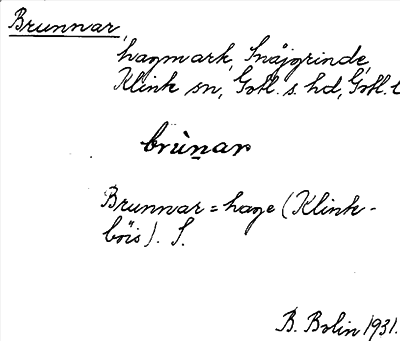 Brunnar,
hagmark, Snåjgrinde,
Klink sn, Gotl. s. hd, Gotl. l
brùn̲ar
Brunnar = hage (Klink-
böis). S.
B. Bolin 1931.